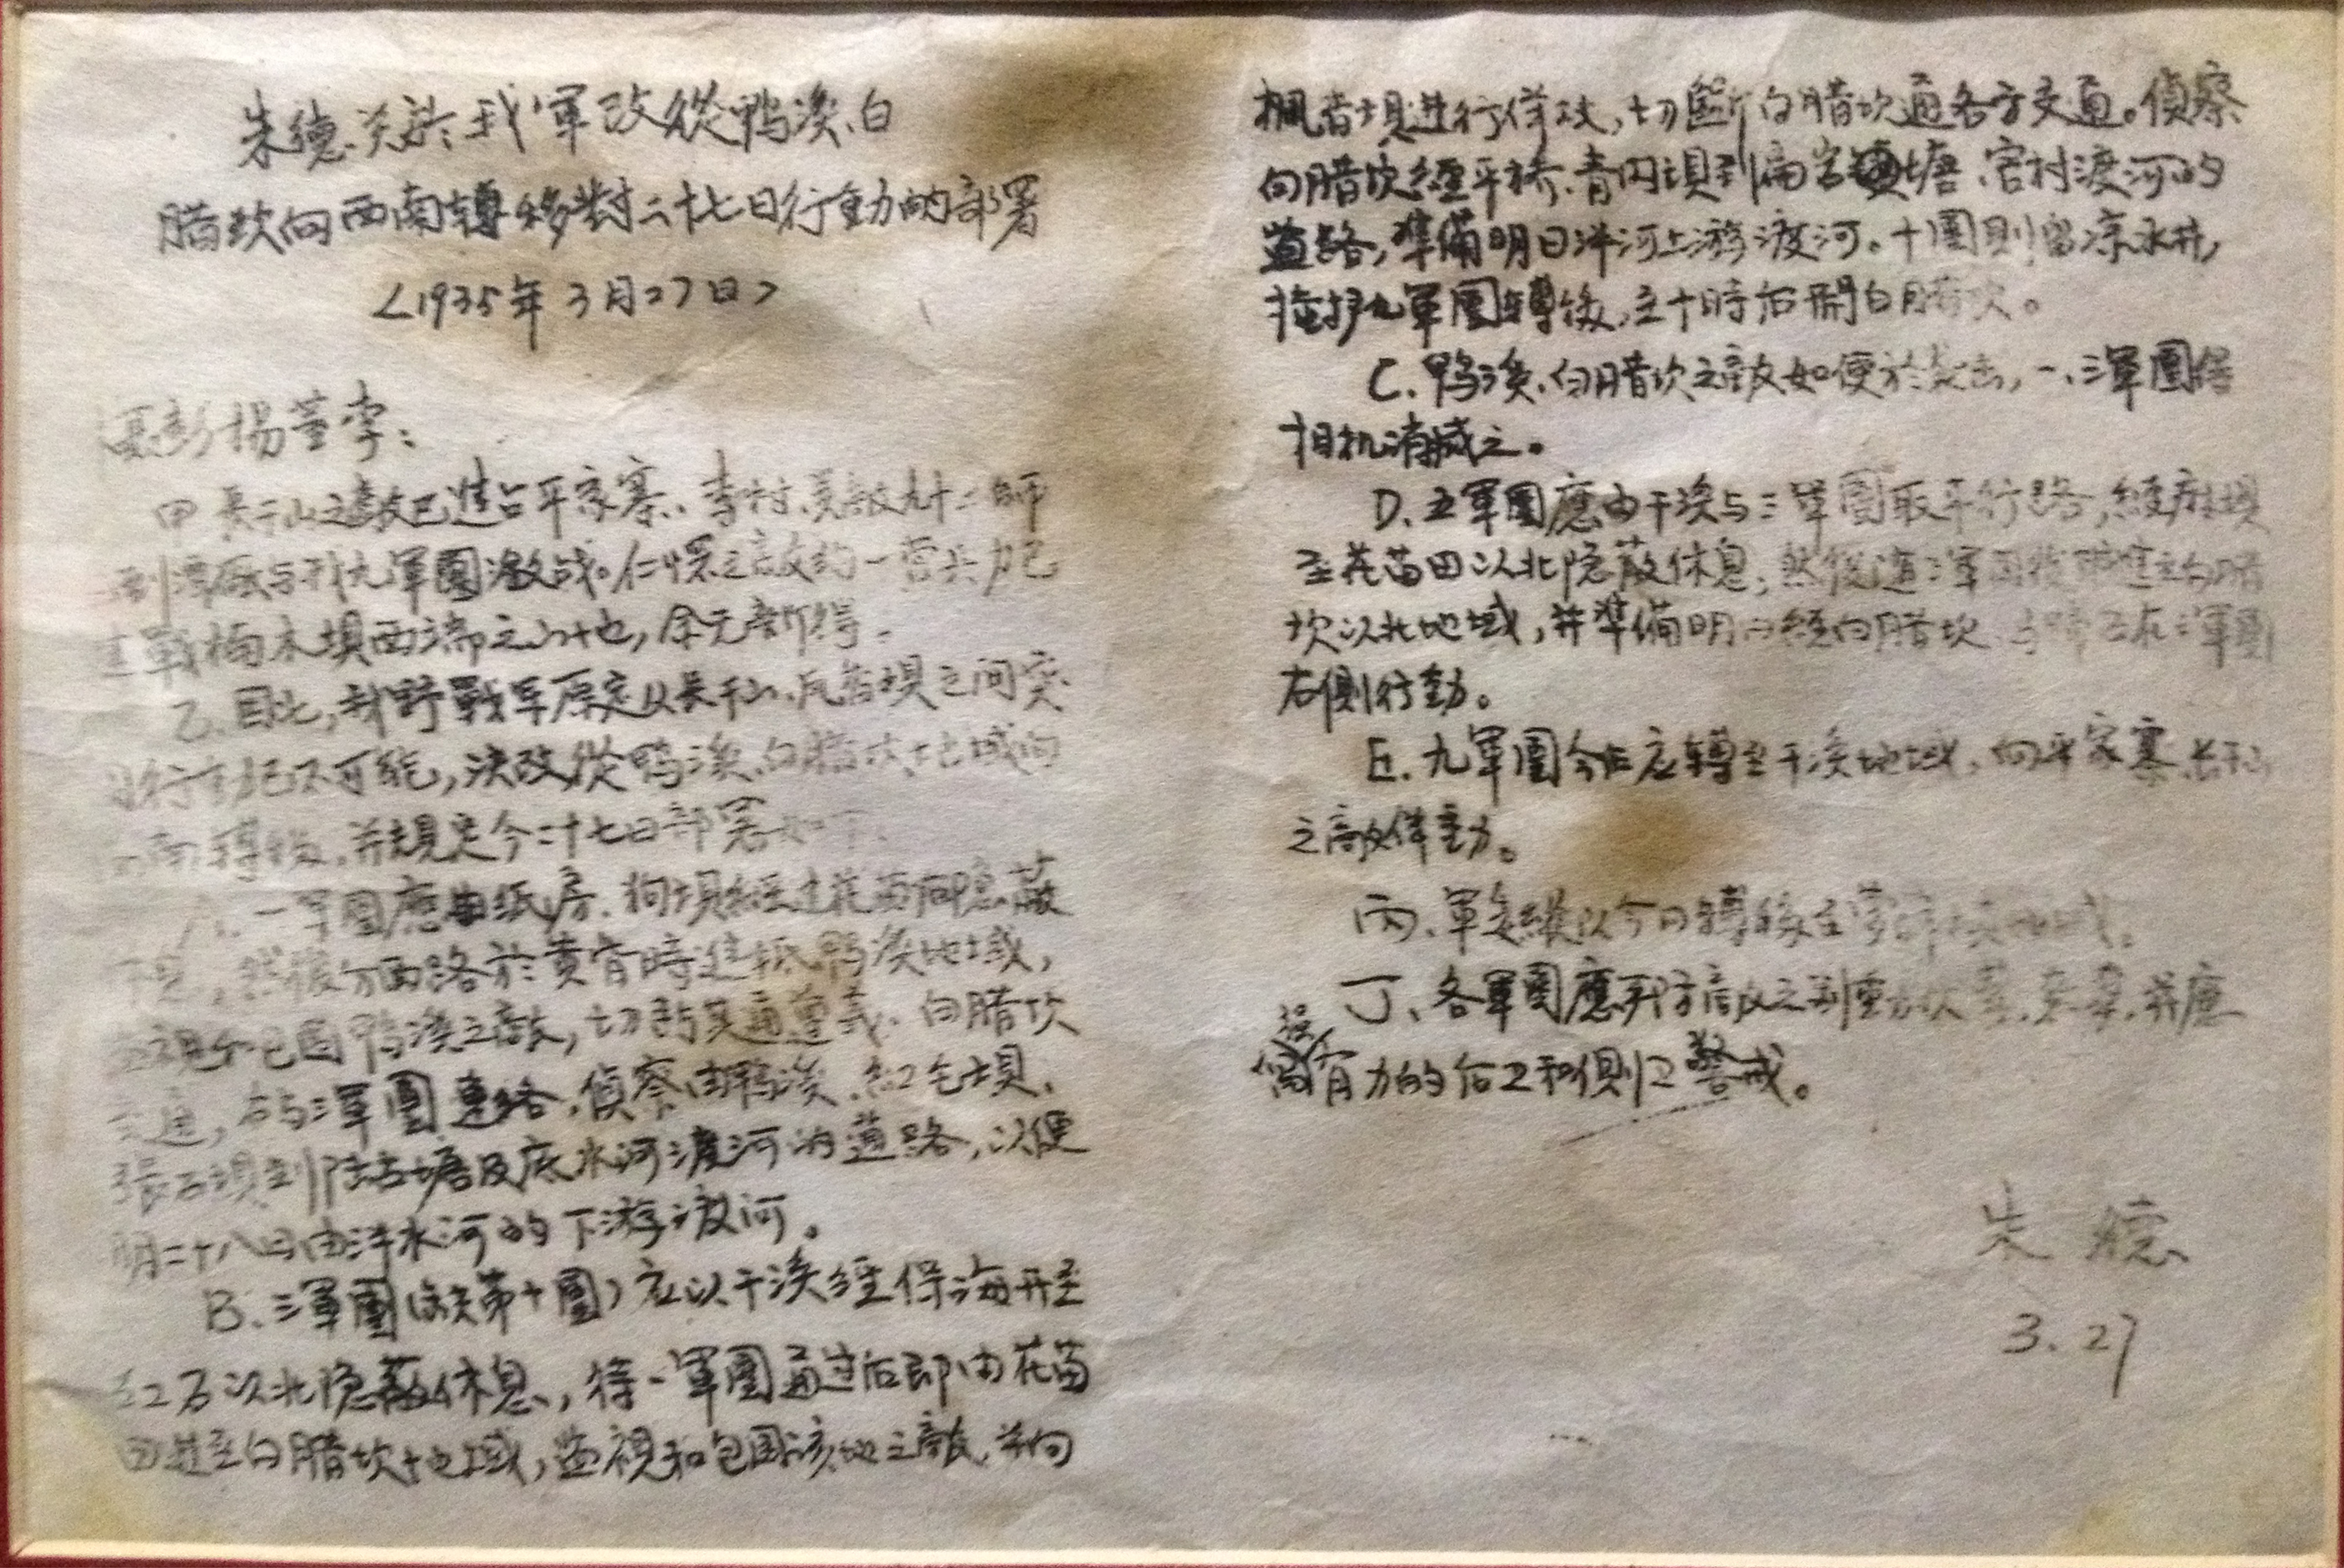 朱德关於我軍改從鴨溪、白
腊坎向西南轉移對二十七日行動的部署
<1935年3月27日>
聶彭楊董李：
甲 長干山之敵已進占平家寨、李村、吴敵九十二師
到潭廠与我九軍團激战。仁怀之敵約一营兵力已
構木坝西端之山地，余无新得。
乙、因此，我野戰軍原定从長干山、风香坝之间突
行動已不可能，決改從鴨溪、白腊坎地域向
南轉移，并規定今二十七日部署如下：
A、一軍團應由紙房、狗坝經花苗田隐蔽
休息，然後分两路於黄昏時進抵鴨溪地域，
包围鴨溪之敵，切断其通遵义、白腊坎
交通，右与三軍團連絡，偵察由鴨溪、紅毛坝、
張石坝到陆古塘及底水河渡河的道路，以便
明二十八日由洋水河的下游渡河。
B、三軍團（缺第十團）应以干溪經保海开至
以北隐蔽休息，待一軍團通过后即由花苗
田進至白腊坎地域，监視和包围該地之敵，并向
枫香坝進行佯攻，切斷白腊坎通各方交通。偵察
由腊坎經平桥、青内坝到偏岩塘、官村渡河的
道路，準備明日洋河上游渡河。十團則留凉水井，
掩护九軍團轉後，主十時后開白腊坎。
C、鴨溪、白腊坎之敵如便於襲击，一、三軍團得
相机消滅之。
D、五軍團應由干溪与三軍團取平行路，經麻坝
至花苗田以北隐蔽休息，然後随三軍團後進至白腊
坎以北地域，并準備明日經白腊坎 在三軍團
右側行動。
E、九軍團今后应轉至干溪地域，向平家寨、長干山
之敵佯動。
丙、軍委縱以今日轉移至
丁、各軍團應严防敵之别動队 并應
留有力的后卫和側卫警戒。
朱德
3.27